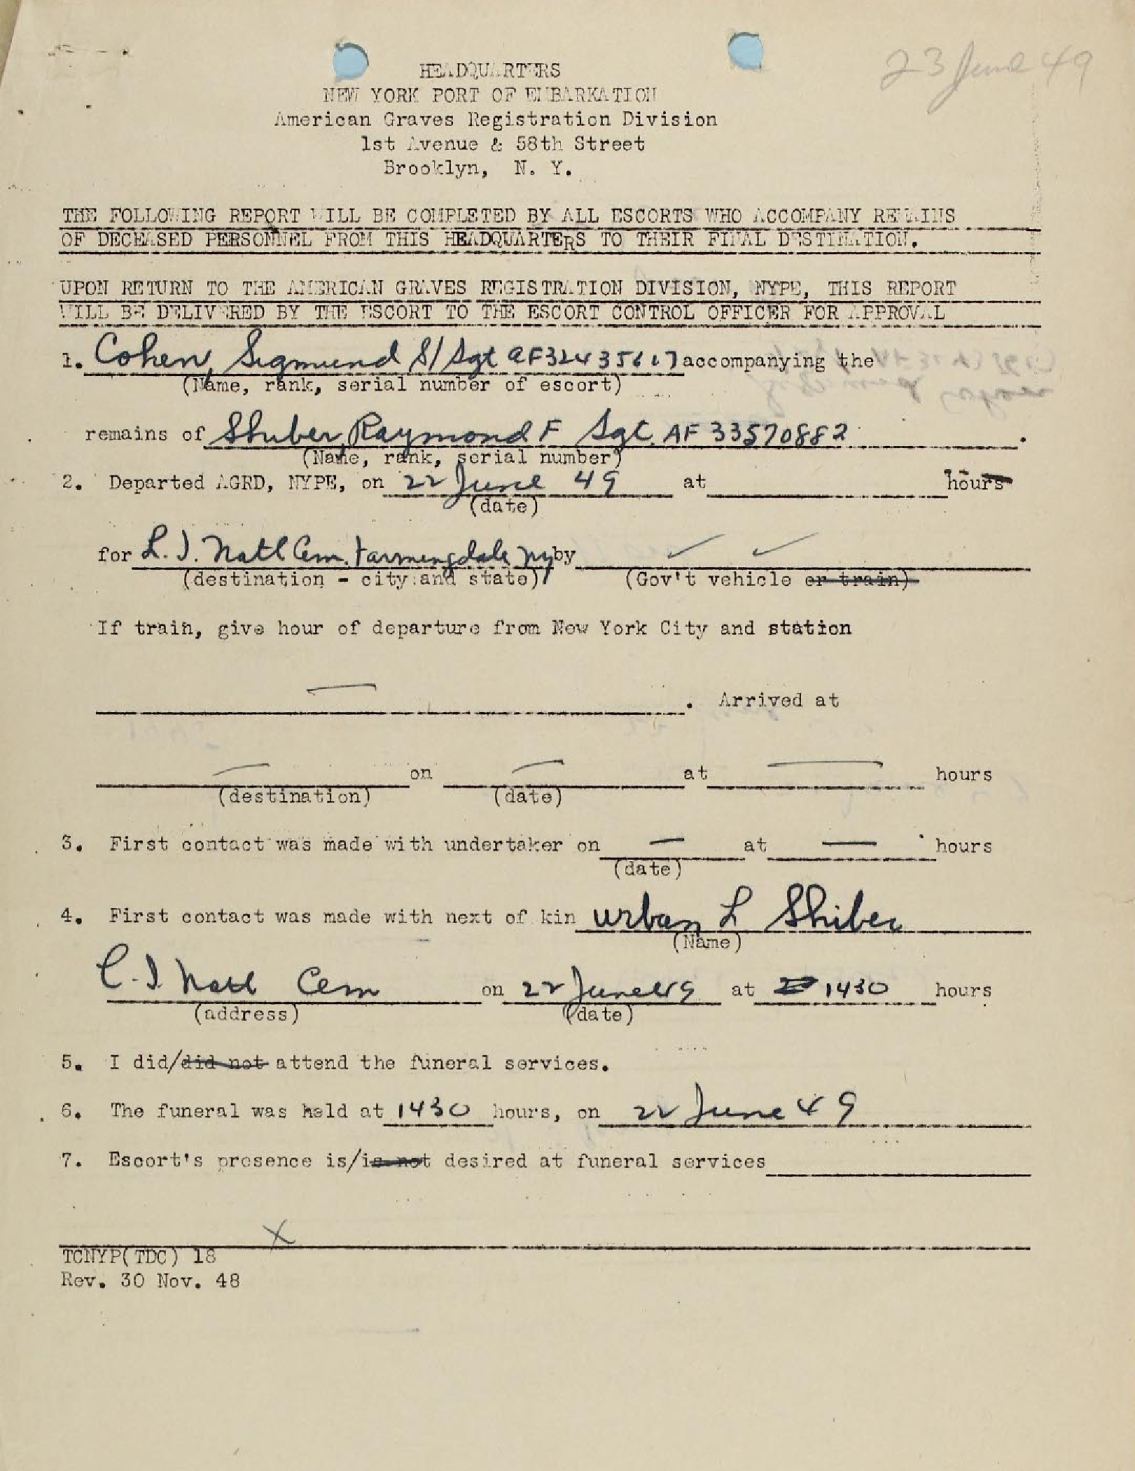 23 June 49
HEADQUARTERS
NEW YORK PORT OF EMBARKATION
American Graves Registration Division
1st Avenue & 58th Street
Brooklyn, N. Y.
THE FOLLOWING REPORT WILL BE COMPLETED BY ALL ESCORTS WHO ACCOMPANY REMAINS
OF DECEASED PERSONNEL FROM THIS HEADQUARTERS TO THEIR FINAL DESTINATION.
UPON RETURN TO THE AMERICAN GRAVES REGISTRATION DIVISION, NYPE, THIS REPORT
WILL BE DELIVERED BY THE ESCORT TO THE ESCORT CONTROL OFFICER FOR APPROVAL
1. Cohen, Sigmund S/Sgt AF32435617 accompanying the
(Name, rank, serial number of escort)
remains of Shuber, Raymond F Sgt AF 33570882.
(Name, rank, serial number)
2. Departed AGRD, NYPE, on 22 June 49 at hours
(date)
for L.I. Natl Cem. Farmingdale NY by ✓ ✓
(destination - city and state) (Gov't vehicle or train)
If train, give hour of departure from New York City and station
— . Arrived at
— on — at — hours
(destination) (date)
3. First contact was made with undertaker on — at — hours
(date)
4. First contact was made with next of kin Urban L Shiber
(Name)
L.I Natl Cem on 22 June 49 at 1430 hours
(address) (date)
5. I did/did not attend the funeral services.
6. The funeral was held at 1430 hours, on 22 June 49
7. Escort's presence is/is not desired at funeral services
X
TCNYP(TDC) 18
Rev. 30 Nov. 48